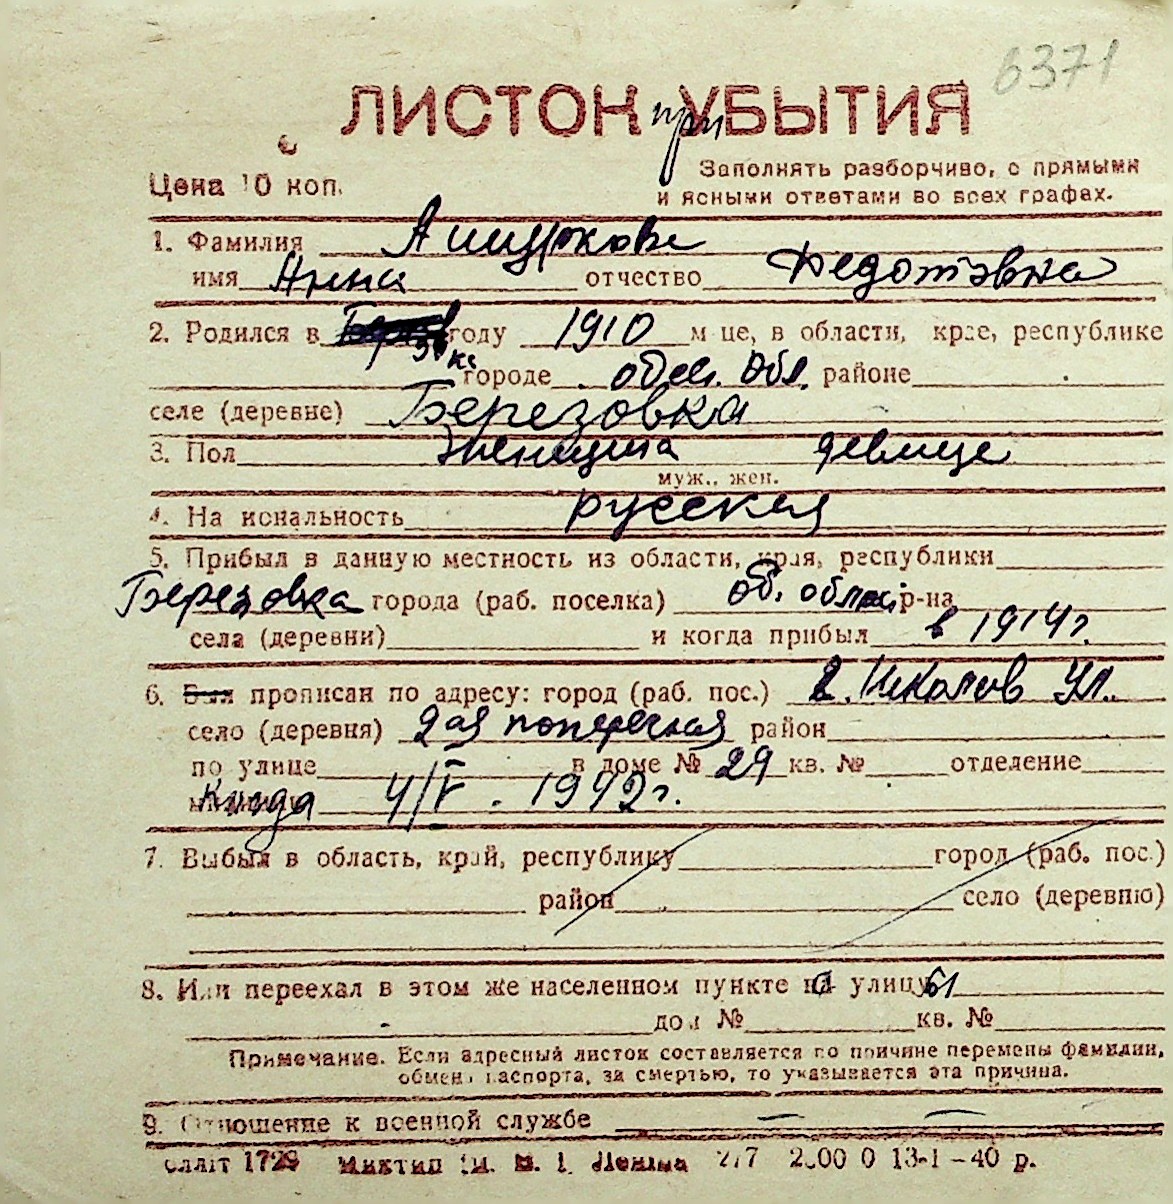 6371
ЛИСТОК при УБЫТИЯ
Цена 10 коп.
Заполнять разборчиво, с прямыми
и ясными ответами во всех графах.
1. Фамилия Ашуркова
имя Анна отчество Федотовна
2. Родился в году 1910 м-це, в области, крае, республике
городе одес. обл. районе
селе (деревне) Березовка
3. Пол женщина девица
муж., жен.
4. Национальность русская
5. Прибыл в данную местность из области, края, республики
Березовка города (раб. поселка) од. области р-на
села (деревни) и когда прибыл в 1914 г.
6. Был прописан по адресу: город (раб. пос.) г. Николаев ул.
село (деревня) 2ая поперечная район
по улице в доме № 29 кв. № отделение
когда 4/V. 1942 г.
7. Выбыл в область, край, республику город (раб. пос.)
район село (деревню)
8. Или переехал в этом же населенном пункте на улицу 61
дом № кв. №
Примечание. Если адресный листок составляется по причине перемены фамилии,
обмена паспорта, за смертью, то указывается эта причина.
9. Отношение к военной службе — —
1729 им. В. И. Леніна 277 13-І-40 р.